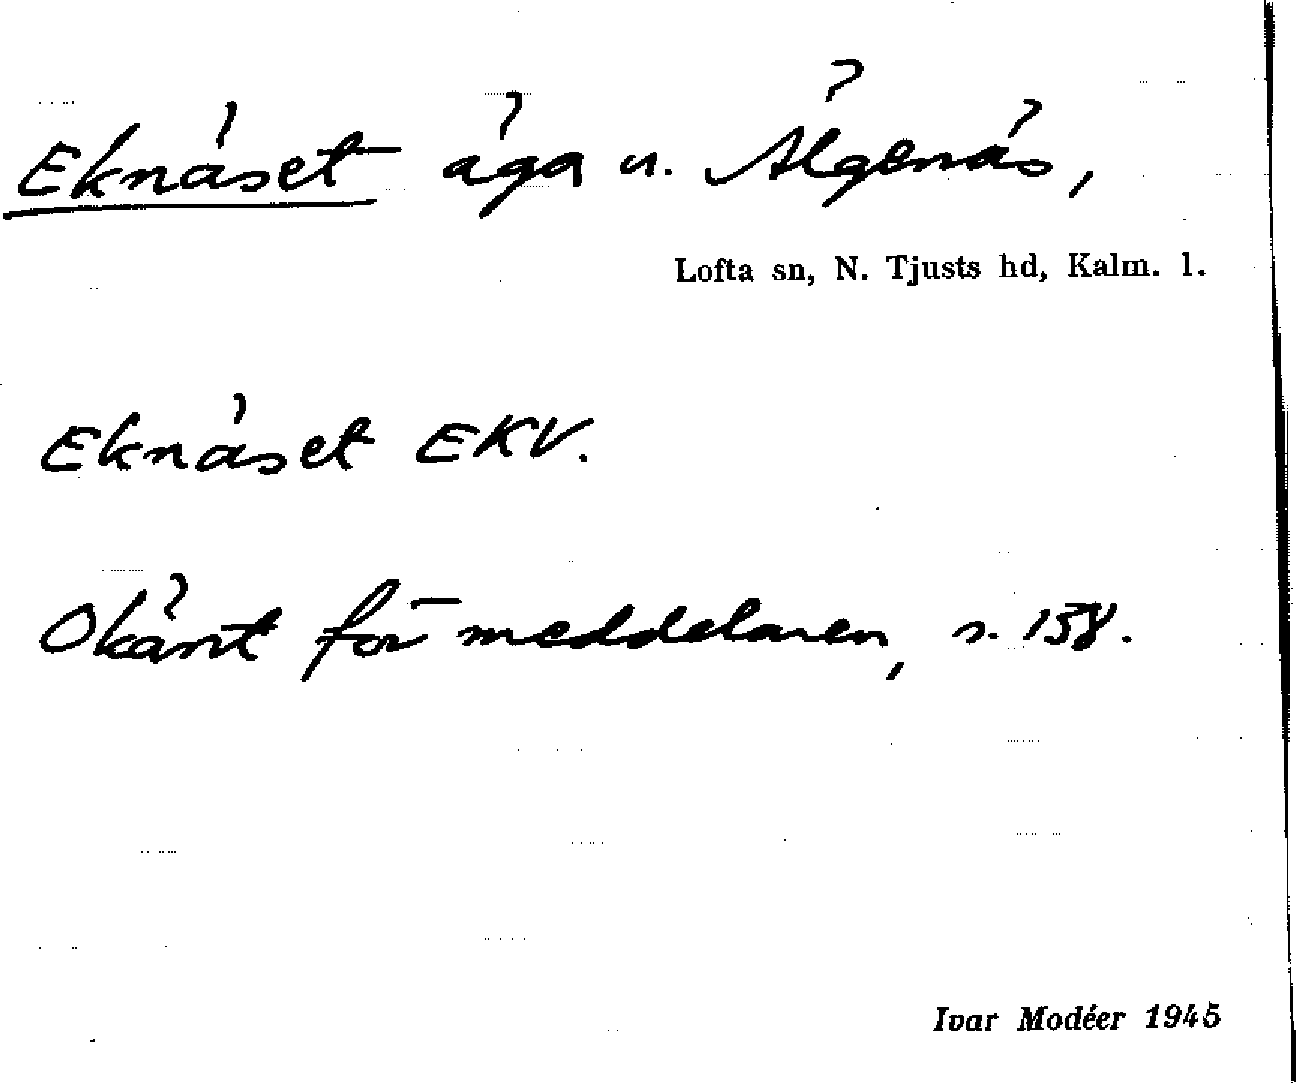 Eknäset äga u. Älgenäs,
Lofta sn, N. Tjusts hd, Kalm. l.
Eknäset EKV.
Okänt för meddelaren, s. 158.
Ivar Modéer 1945